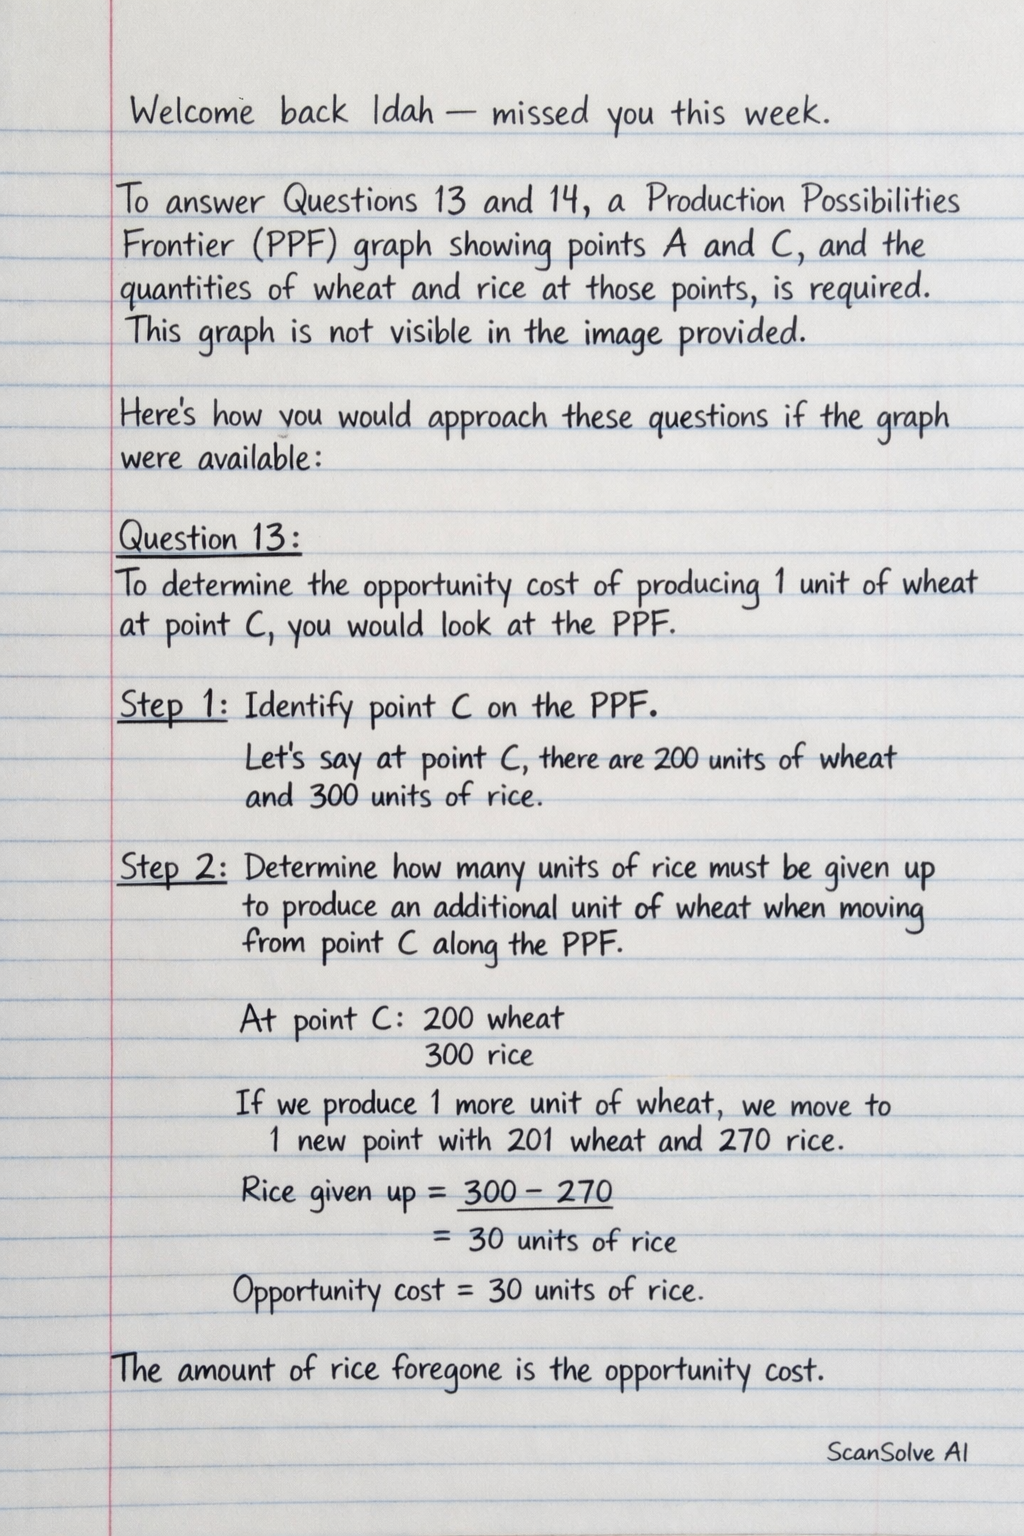 Welcome back Idah — missed you this week.
To answer Questions 13 and 14, a Production Possibilities
Frontier (PPF) graph showing points A and C, and the
quantities of wheat and rice at those points, is required.
This graph is not visible in the image provided.
Here's how you would approach these questions if the graph
were available:
Question 13:
To determine the opportunity cost of producing 1 unit of wheat
at point C, you would look at the PPF.
Step 1: Identify point C on the PPF.
Let's say at point C, there are 200 units of wheat
and 300 units of rice.
Step 2: Determine how many units of rice must be given up
to produce an additional unit of wheat when moving
from point C along the PPF.
At point C: 200 wheat
300 rice
If we produce 1 more unit of wheat, we move to
1 new point with 201 wheat and 270 rice.
Rice given up = 300 - 270
= 30 units of rice
Opportunity cost = 30 units of rice.
The amount of rice foregone is the opportunity cost.
ScanSolve AI